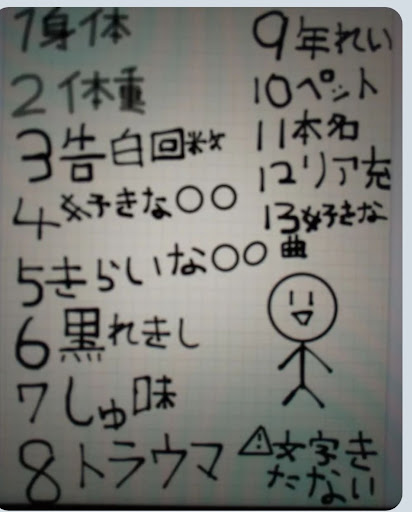 1身体
2体重
3告白回数
4好きな○○
5きらいな○○
6黒れきし
7しゅ味
8トラウマ
9年れい
10ペット
11本名
12リア充
13好きな
曲
⚠文字き
たない